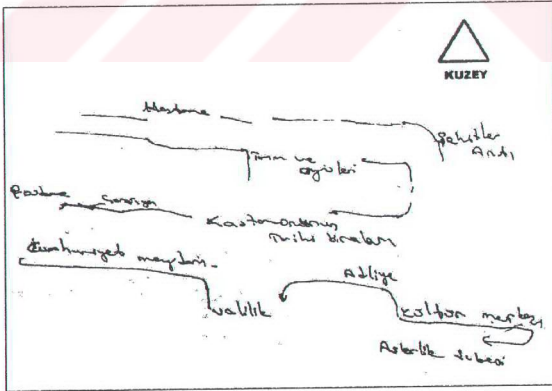 KUZEY
Hastane
Şehitler Anıtı
Tarım ve
Köyişleri
Kastamonunun
Tarihi binaları
Cumhuriyet meydanı
Adliye
Valilik
Kültür merkezi
Askerlik Şubesi